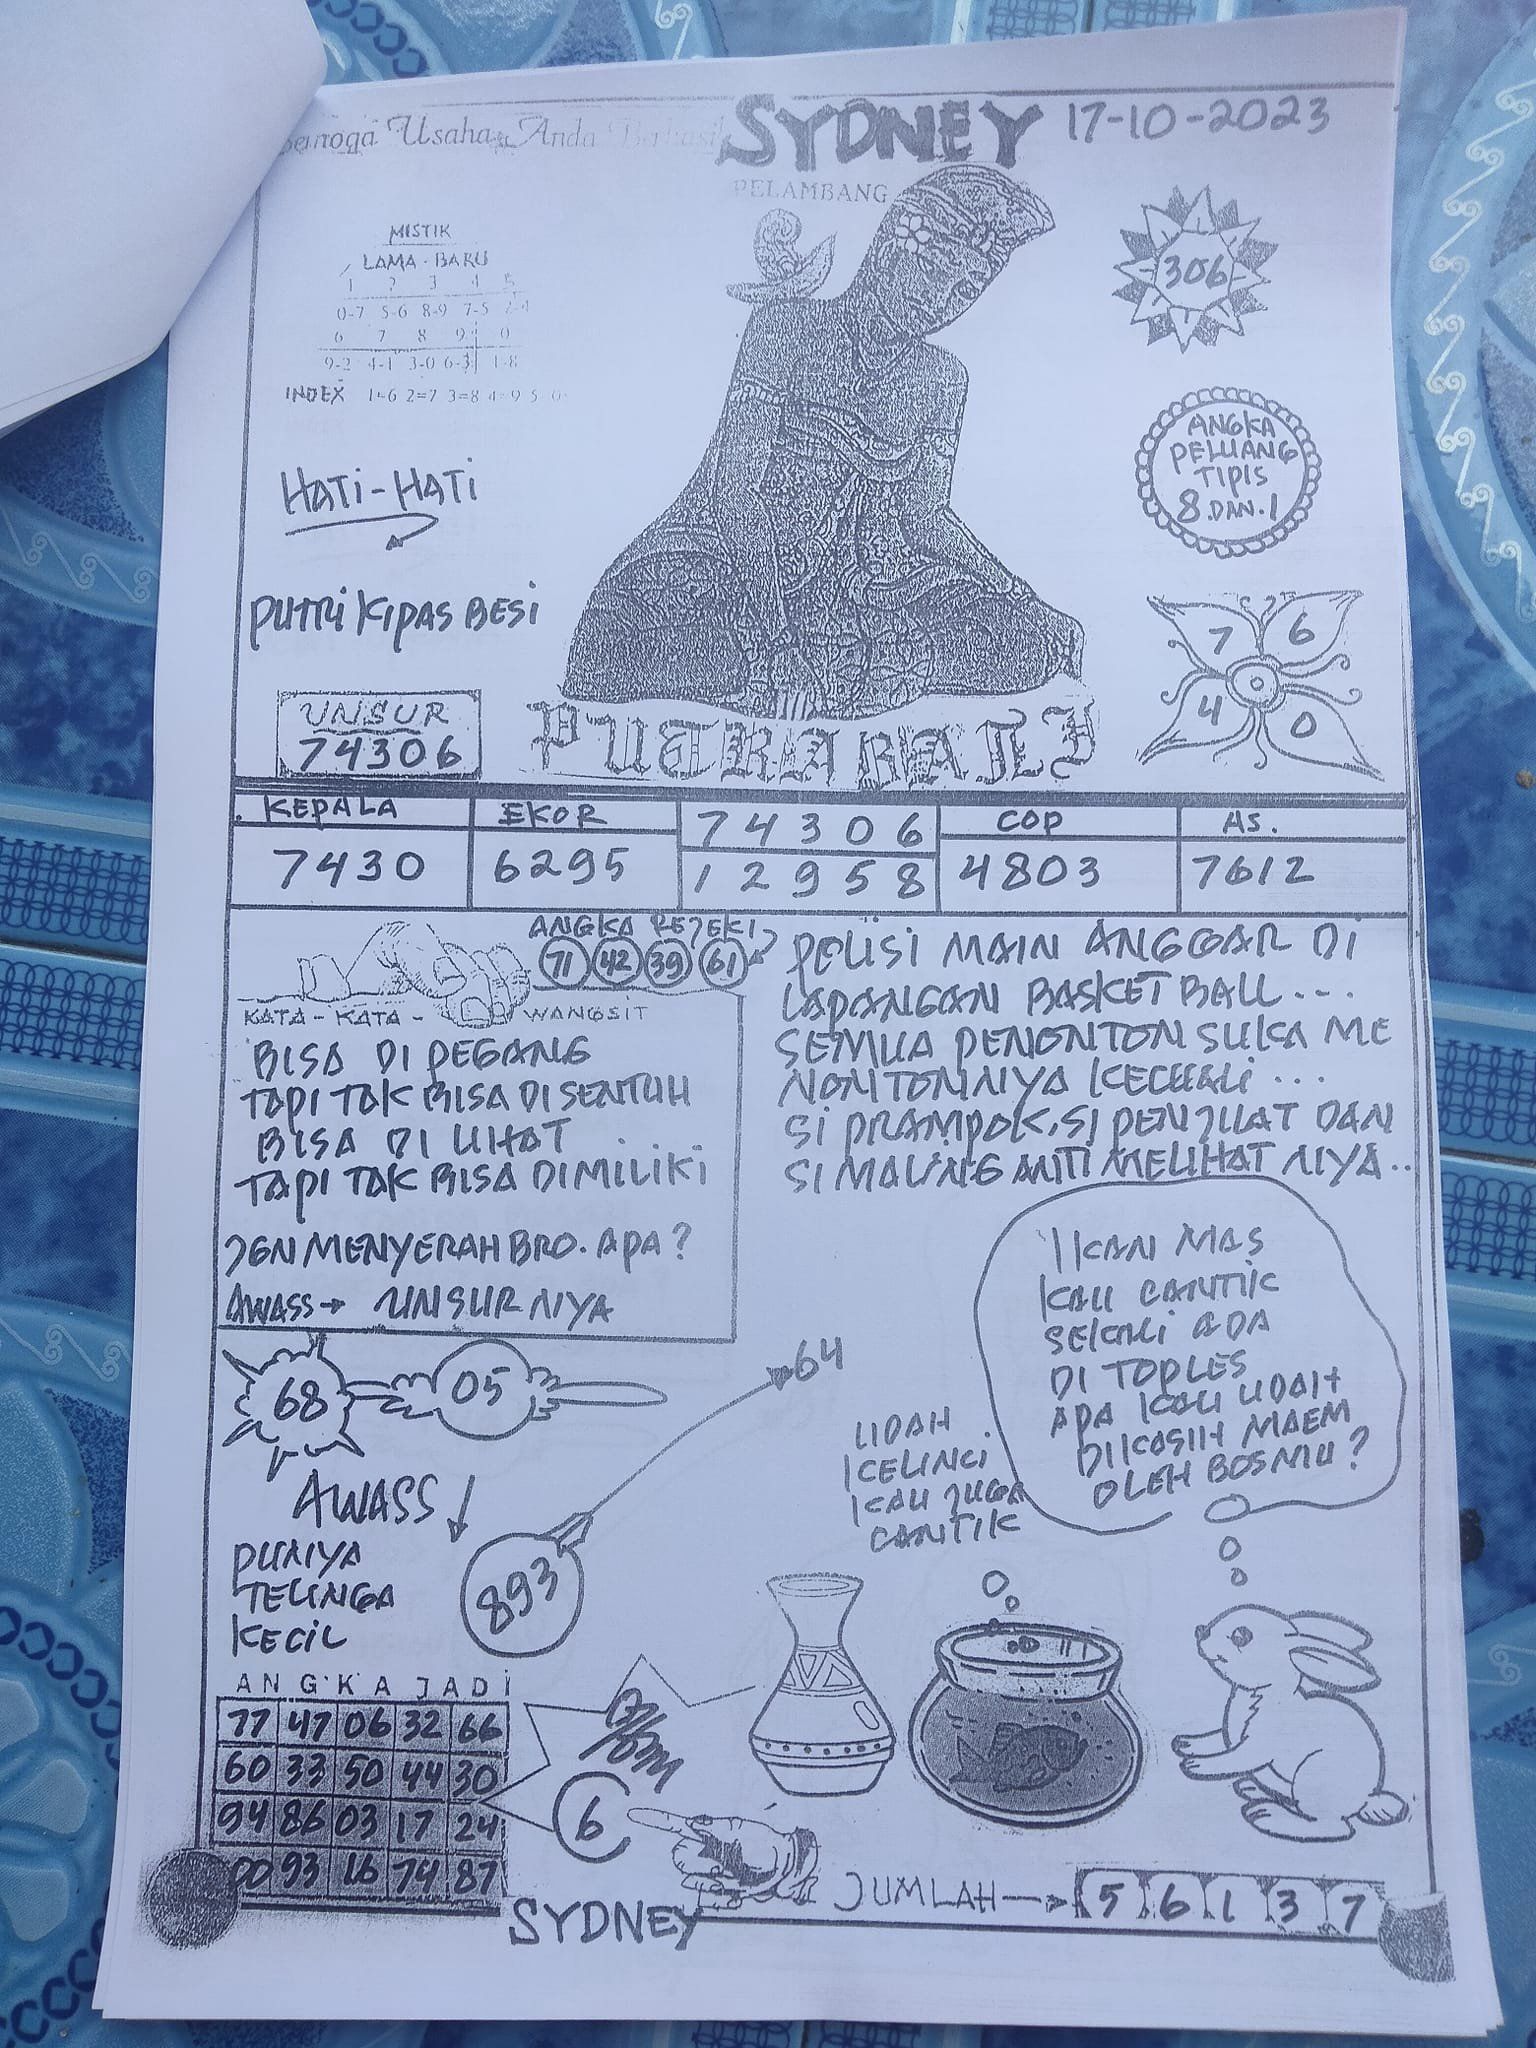 Semoga Usaha Anda Berhasil
SYDNEY 17-10-2023
PELAMBANG
MISTIK
LAMA - BARU
1 2 3 4 5
0-7 5-6 8-9 7-5 2-4
6 7 8 9 0
9-2 4-1 3-0 6-3 1-8
INDEX 1=6 2=7 3=8 4=9 5 0
306
ANGKA
PELUANG
TIPIS
8 DAN 1
HATI-HATI
PUTRI KIPAS BESI
7 6
4 0
UNSUR
74306
PUTRA BALI
KEPALA EKOR 74306 COP AS.
7430 6295 12958 4803 7612
ANGKA REJEKI
71 42 39 61
KATA-KATA- WANGSIT
BISA DI PEGANG
TAPI TAK BISA DISENTUH
BISA DI LIHAT
TAPI TAK BISA DIMILIKI
JGN MENYERAH BRO. APA?
AWASS UNSURNYA
POLISI MAIN ANGGAR DI
LAPANGAN BASKET BALL...
SEMUA PENONTON SUKA ME
NONTONNYA KECUALI...
SI PRAMPOK, SI PENJUAT DAN
SI MALING ANTI MELIHATNYA..
IKAN MAS
KAU CANTIK
SEKALI ADA
DI TOPLES
APA KAU UDAH
DIKASIH MAEM
OLEH BOSMU?
68 05
64
UDAH
KELINCI
KAU JUGA
CANTIK
AWASS
PUNYA
TELINGA
KECIL
893
ANGKA JADI
77 47 06 32 66
60 33 50 44 30
94 86 03 17 24
00 93 16 74 87
6
JUMLAH 5 6 1 3 7
SYDNEY